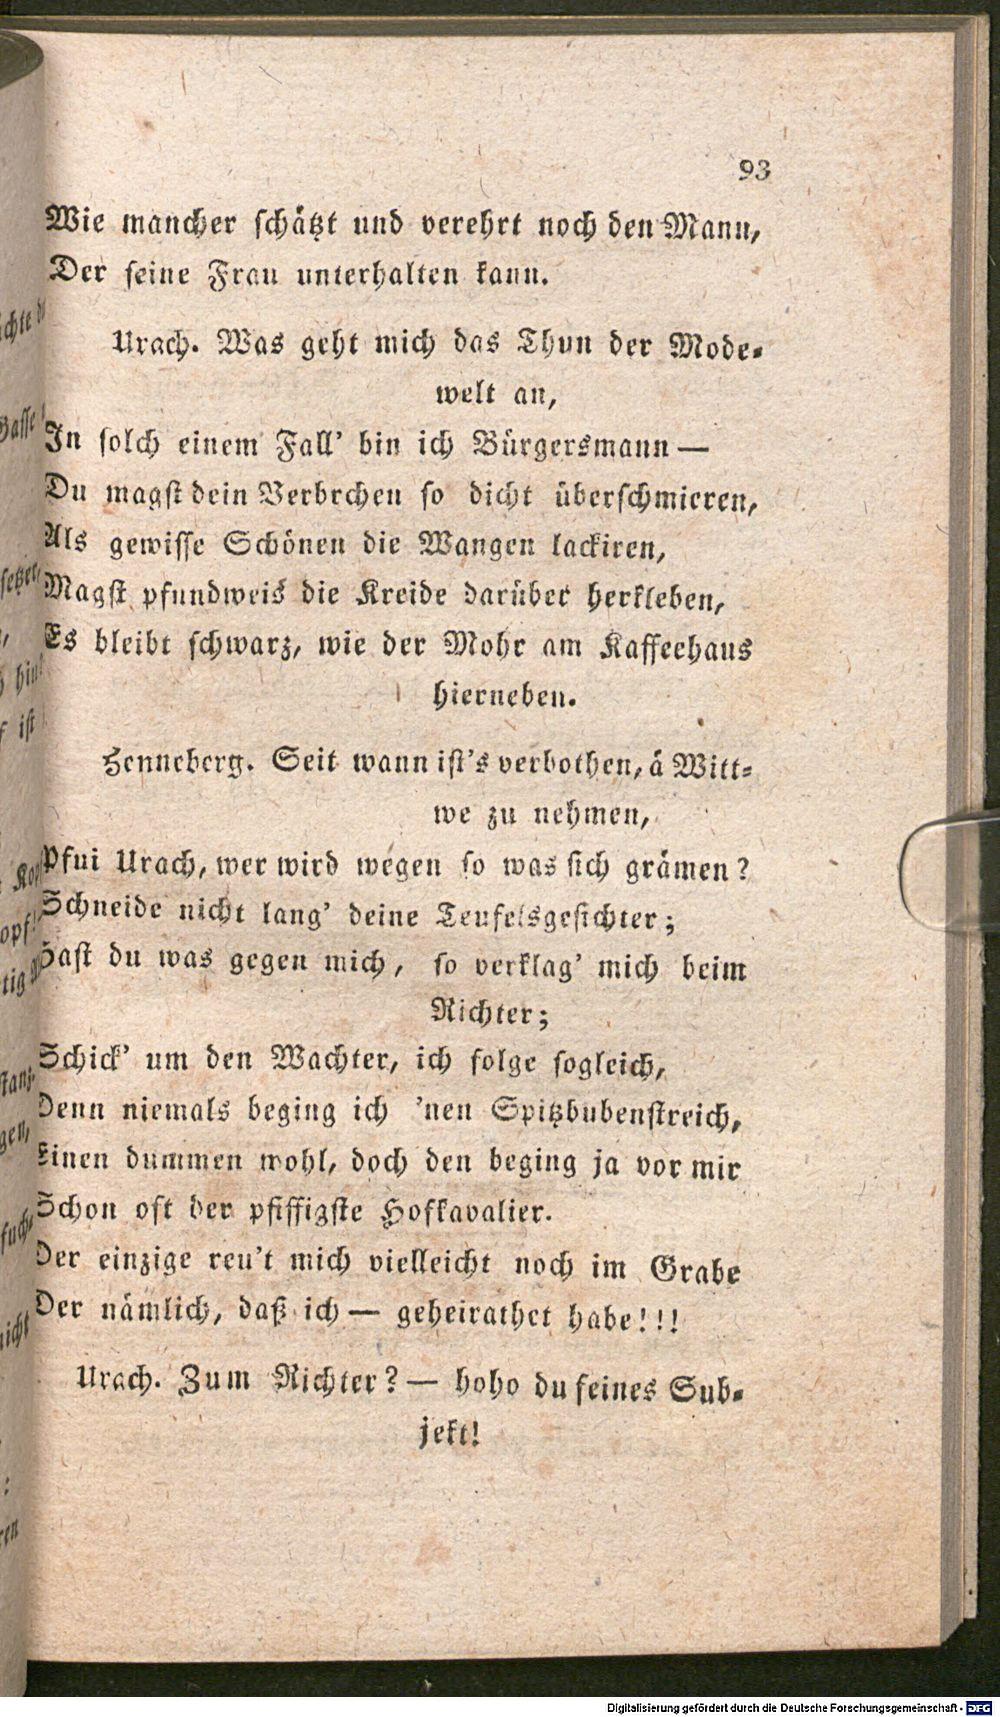 93
Wie mancher schätzt und verehrt noch den Mann,
Der seine Frau unterhalten kann.
Urach. Was geht mich das Thun der Mode-
welt an,
In solch einem Fall' bin ich Bürgersmann —
Du magst dein Verbrchen so dicht überschmieren,
Als gewisse Schönen die Wangen lackiren,
Magst pfundweis die Kreide darüber herkleben,
Es bleibt schwarz, wie der Mohr am Kaffeehaus
hierneben.
Henneberg. Seit wann ist's verbothen, ä Witt-
we zu nehmen,
Pfui Urach, wer wird wegen so was sich grämen?
Schneide nicht lang' deine Teufelsgesichter;
Hast du was gegen mich, so verklag' mich beim
Richter;
Schick' um den Wachter, ich folge sogleich,
Denn niemals beging ich 'nen Spitzbubenstreich,
Einen dummen wohl, doch den beging ja vor mir
Schon oft der pfiffigste Hofkavalier.
Der einzige reu't mich vielleicht noch im Grabe
Der nämlich, daß ich — geheirathet habe!!!
Urach. Zum Richter? — hoho du feines Sub-
jekt!
Digitalisierung gefördert durch die Deutsche Forschungsgemeinschaft - DFG